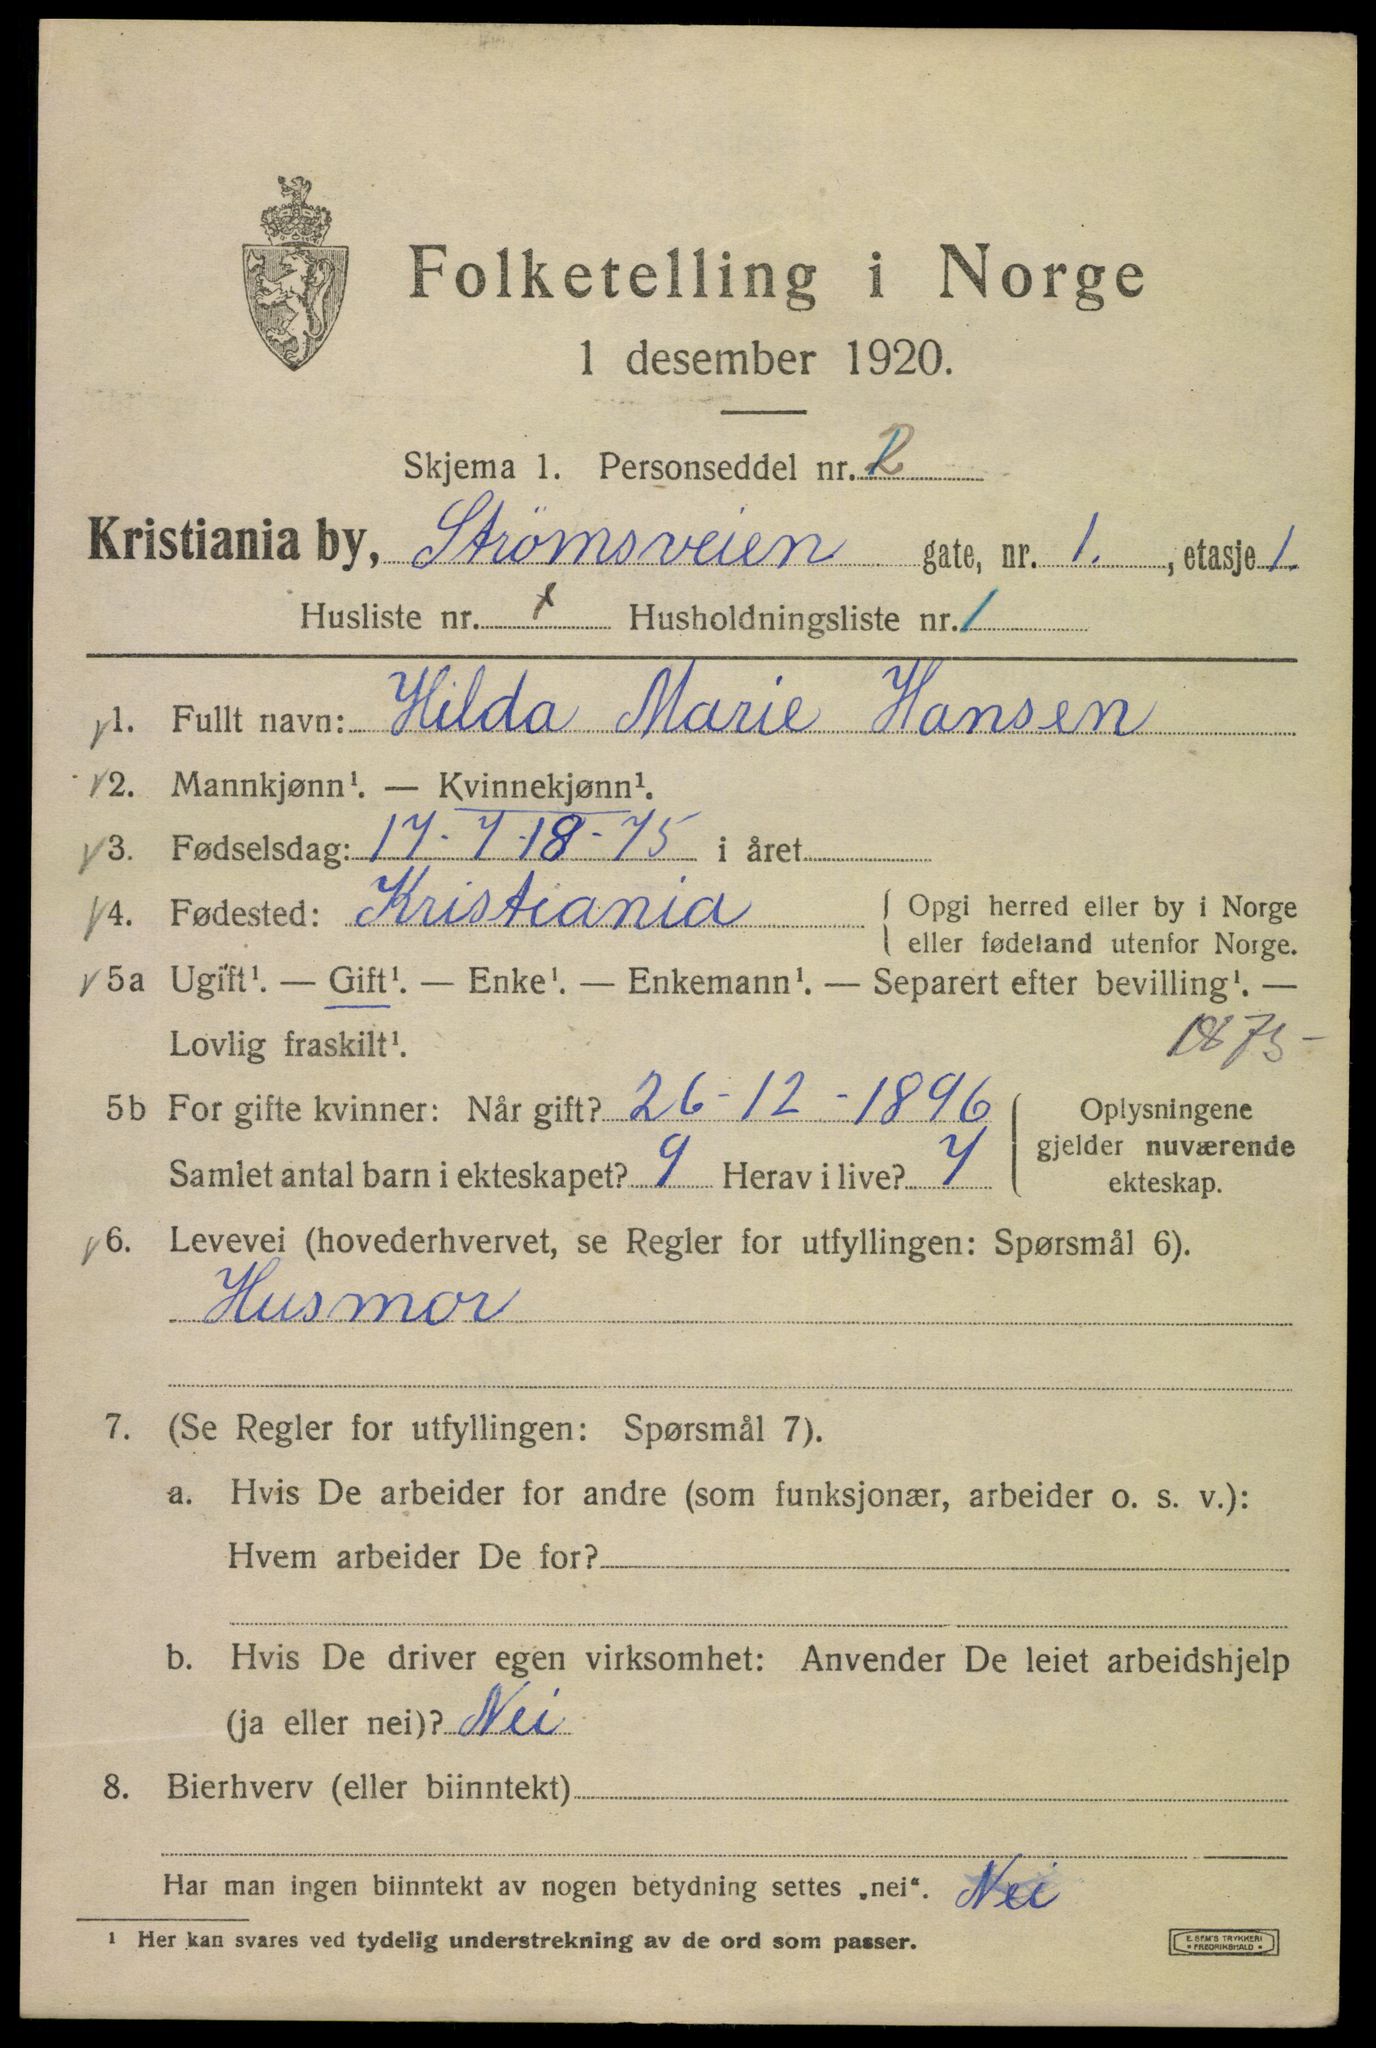 Folketelling i Norge
1 desember 1920.
Skjema 1. Personseddel nr. 2
Kristiania by, Strömsveien gate, nr. 1., etasje 1.
Husliste nr. Husholdningsliste nr. 1
1. Fullt navn: Hilda Marie Hansen
2. Mannkjønn¹. — Kvinnekjønn¹.
3. Fødselsdag: 17-7-18-75 i året
4. Fødested: Kristiania { Opgi herred eller by i Norge
eller fødeland utenfor Norge.
5a Ugift¹. — Gift¹. — Enke¹. — Enkemann¹. — Separert efter bevilling¹. —
Lovlig fraskilt¹. 1875
5b For gifte kvinner: Når gift? 26-12-1896 { Oplysningene
gjelder nuværende
Samlet antal barn i ekteskapet? 9 Herav i live? 7 ekteskap.
6. Levevei (hovederhvervet, se Regler for utfyllingen: Spørsmål 6).
Husmor
7. (Se Regler for utfyllingen: Spørsmål 7).
a. Hvis De arbeider for andre (som funksjonær, arbeider o. s. v.):
Hvem arbeider De for?
b. Hvis De driver egen virksomhet: Anvender De leiet arbeidshjelp
(ja eller nei)? Nei
8. Bierhverv (eller biinntekt)
Har man ingen biinntekt av nogen betydning settes „nei“. Nei
¹ Her kan svares ved tydelig understrekning av de ord som passer.
E. SEM'S TRYKKERI
• FREDRIKSHALD •